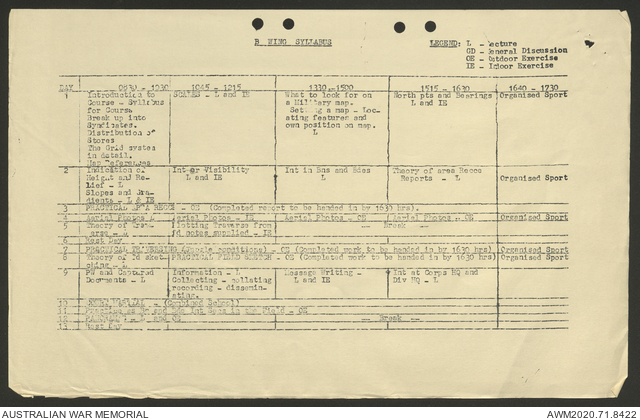 B WING SYLLABUS
LEGEND: L - Lecture
GD - General Discussion
OE - Outdoor Exercise
IE - Indoor Exercise
DAY 0830 - 1030 1045 - 1215 1330 - 1500 1515 - 1630 1640 - 1730
1 Introduction to SCALES - L and IE What to look for on North pts and Bearings Organised Sport
Course - Syllabus a Military map. L and IE
for Course Setting a map - Loc-
Break up into ating features and
Syndicates. own position on map.
Distribution of L
Stores
The Grid system
in detail.
Map References.
2 Indication of Inter Visibility Int in Bns and Bdes Theory of area Recce
Height and Re- L and IE L Reports - L Organised Sport
lief - L
Slopes and Gra-
dients - L & IE
3 PRACTICAL AREA RECCE - OE (Completed report to be handed in by 1630 hrs).
4 Aerial Photos - Aerial Photos - IE Aerial Photos - OE Aerial Photos - OE Organised Sport
5 Theory of Trav- Plotting Traverse from -- Break --
erse - fd notes supplied - IE
6 Rest Day
7 PRACTICAL TRAVERSING conditions) - OE (Completed work to be handed in by 1630 hrs) Organised Sport
8 Theory of Fd sket- PRACTICAL FIELD SKETCH - OE (Completed work to be handed in by 1630 hrs). Organised Sport
ching - L
9 PW and Captured Information - L Message Writing - Int at Corps HQ and
Documents - L Collecting - collating L and IE Div HQ - L
recording - dissemin-
ating.
10 - (Combined School)
11 Bn and Bde Int Secs in the Field - OE
12 - L and OE -- Break --
13 Rest Day
AUSTRALIAN WAR MEMORIAL
AWM2020.71.8422